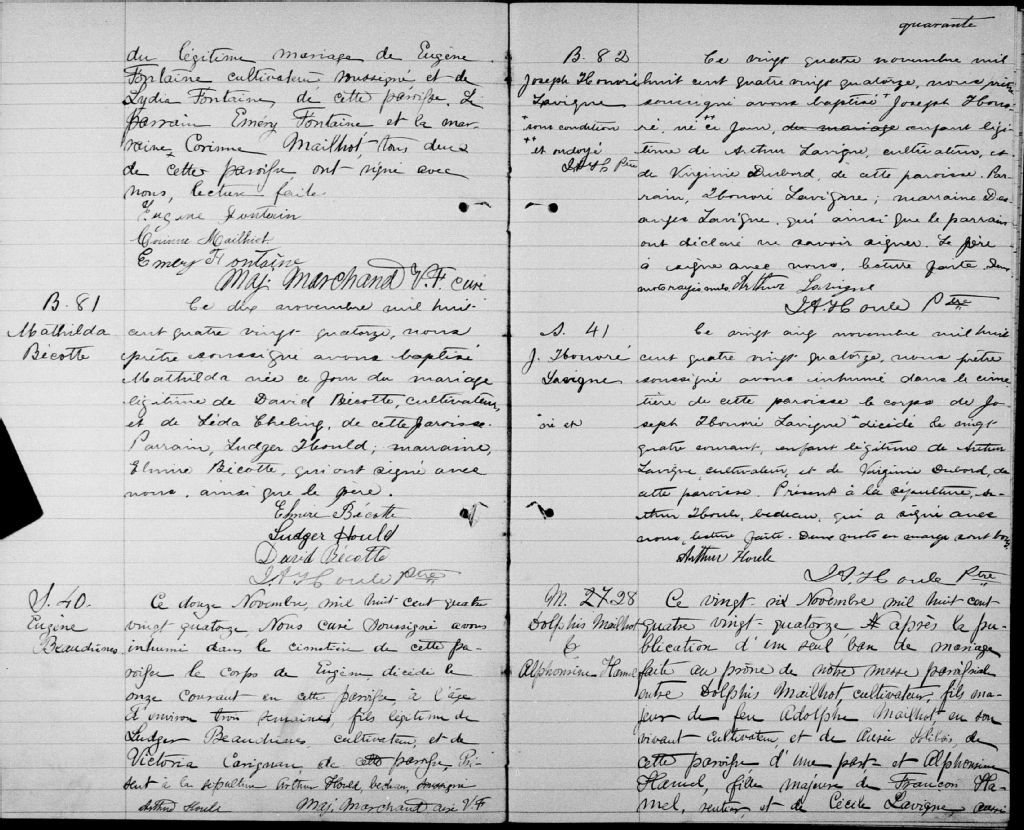 du légitime mariage de Eugène
Fontaine cultivateur soussigné et de
Lydia Fontaine, de cette paroisse. Le
parrain Eméry Fontaine et la mar-
raine, Corinne Mailhot, tous deux
de cette paroisse ont signé avec
nous, lecture faite.
Eugène Fontain
Corinne Mailhot
Eméry Fontaine
Maj: Marchand V.F. curé
B. 81
Mathilda
Bécotte
Ce dix novembre mil huit
cent quatre vingt quatorze, nous
prêtre soussigné avons baptisé
Mathilda née ce jour du mariage
légitime de David Bécotte, cultivateur,
et de Léda Ebeling, de cette paroisse.
Parrain, Ludger Hould; marraine,
Elmire Bécotte, qui ont signé avec
nous, ainsi que le père.
Elmire Bécotte
Ludger Hould
David Bécotte
J.A. Houle Ptre
S. 40.
Eugène
Beaudrines
Ce douze Novembre, mil huit cent quatre
vingt quatorze, Nous curé soussigné avons
inhumé dans le cimetière de cette pa-
roisse le corps de Eugène, décédé le
onze courant en cette paroisse à l'âge
d'environ trois semaines, fils légitime de
Ludger Beaudrines, cultivateur, et de
Victoria Carignan, de paroisse, Pré-
sent à la sépulture Arthur Hould, bedeau, soussigné
Arthur Houle Maj: Marchand curé V.F
quarante
B. 82
Joseph Honoré
Lavigne
+ sous condition
++ et ondoyé
J.A.H. Ptre
Ce vingt quatre novembre mil
huit cent quatre vingt quatorze, nous prêtre
soussigné avons baptisé + Joseph Hono-
ré, né ++ ce jour, du mariage enfant légi-
time de Arthur Lavigne, cultivateur, et
de Virginie Dubord, de cette paroisse. Par-
rain, Honoré Lavigne; marraine Des-
anges Lavigne, qui ainsi que le parrain
ont déclaré ne savoir signer. Le père
a signé avec nous, lecture faite. Deux
mots rayés nuls Arthur Lavigne
J.A. Houle Ptre
S. 41
J. Honoré
Lavigne
+ né et
Ce vingt cinq novembre mil huit
cent quatre vingt quatorze, nous prêtre
soussigné avons inhumé dans le cime-
tière de cette paroisse le corps de Jo-
seph Honoré Lavigne + décédé le vingt
quatre courant, enfant légitime de Arthur
Lavigne, cultivateur, et de Virginie Dubord, de
cette paroisse. Présent à la sépulture, Ar-
thur Houle, bedeau, qui a signé avec
nous, lecture faite. Deux mots en marge sont bons
Arthur Houle
J.A. Houle Ptre
M. 27 28
Dolphis Mailhot
&
Alphonsine Hamel
Ce vingt-six Novembre mil huit cent
quatre vingt-quatorze après la pu-
blication d'un seul ban de mariage
faite au prône de notre messe paroissiale
entre Dolphis Mailhot, cultivateur, fils ma-
jeur de feu Adolphe Mailhot, en son
vivant cultivateur, et de de
cette paroisse d'une part et Alphonsine
Hamel, fille majeure de François Ha-
mel, rentier, et de Cécile Lavigne aussi